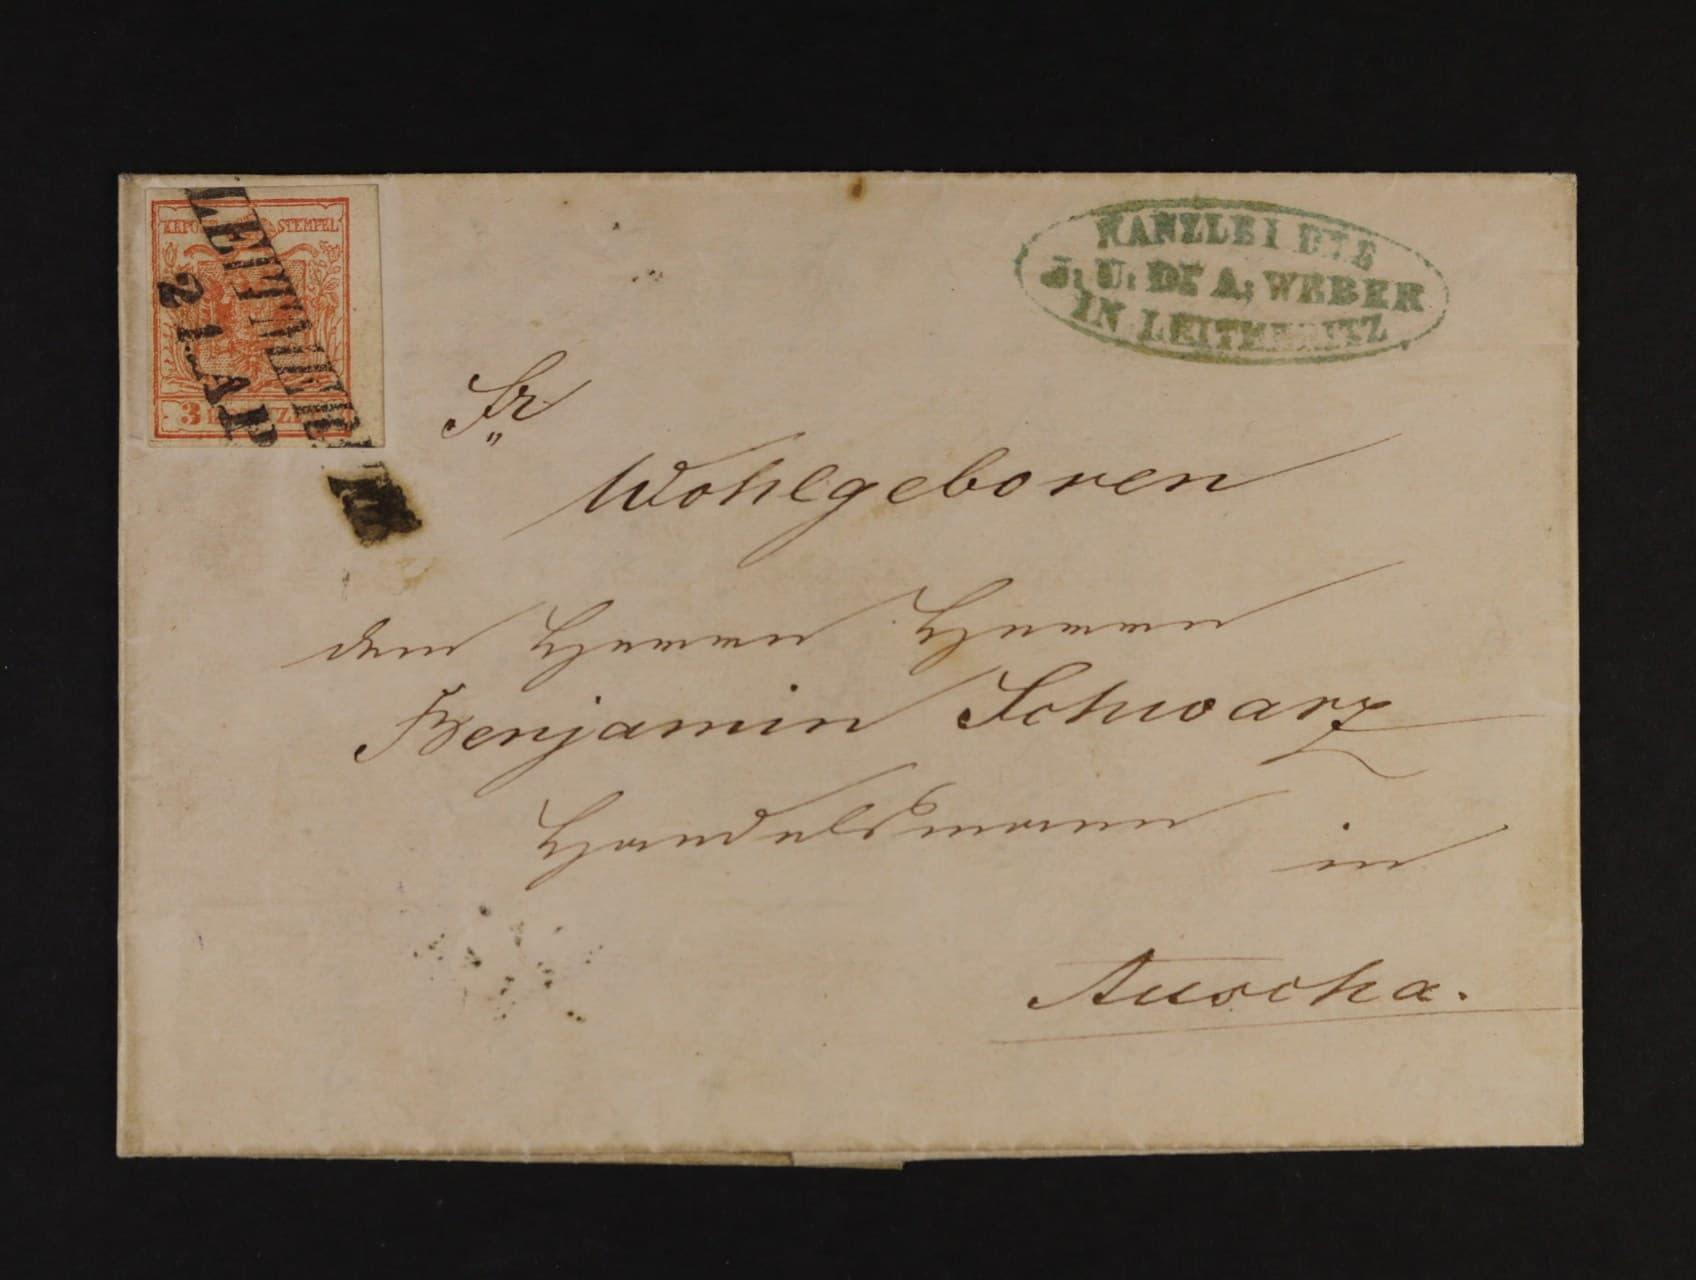 K K POST STEMPEL
3 KREUZER
LEITMERITZ
21. APR
KANZLEI DES
J: U: Dr A; WEBER
IN LEITMERITZ
Sr
Wohlgeboren
dem Herrn Herrn
Benjamin Schwarz
Handelsmann in
Auscha.